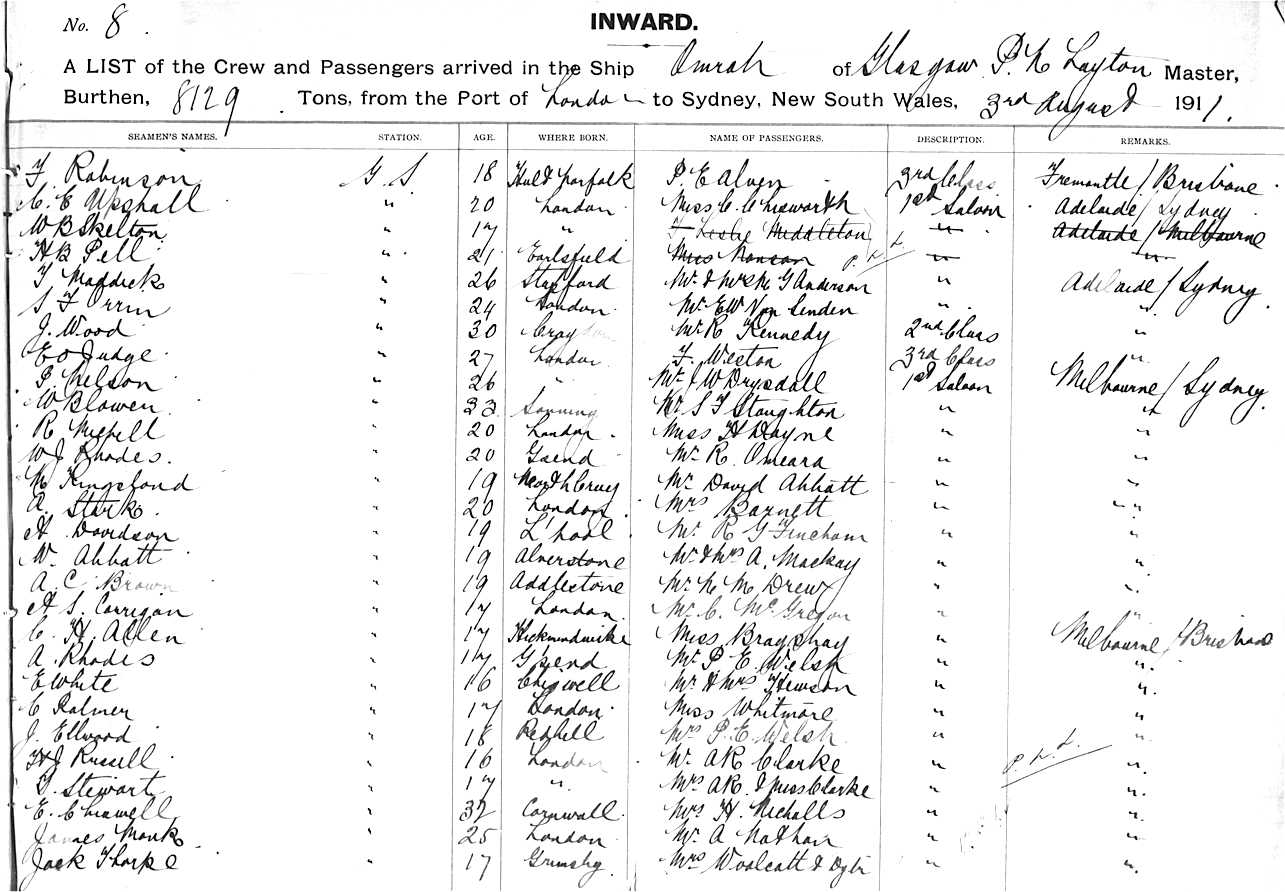 No. 8.
INWARD.
A LIST of the Crew and Passengers arrived in the Ship Omrah of Glasgow P. N Layton Master,
Burthen, 8129 Tons, from the Port of London to Sydney, New South Wales, 3rd August 1911.
SEAMEN'S NAMES. STATION. AGE. WHERE BORN. NAME OF PASSENGERS. DESCRIPTION. REMARKS.
F. Robinson G. S. 18 Norfolk P. E Alven 3rd Class Fremantle / Brisbane
C. E Upshall " 20 London Miss C Chisworth 1st Saloon Adelaide / Sydney
W B Skelton " 17 " F Leslie Middleton " Adelaide / Melbourne
H B Pell " 21 Earlsfield Miss Nanson P. L. L. " "
F Maddick " 26 Mr & Mrs G Anderson " Adelaide / Sydney
S F Orrin " 24 London Mr E W Von Senden " "
J. Wood " 30 Mr R Kennedy 2nd Class "
E O Judge " 27 London F. Weston 3rd Class "
P. Nelson " 26 " Mr J W Drysdall 1st Saloon Melbourne / Sydney
W Blowen " 23 Sonning Mr S F Stoughton " "
R Michell " 20 London Miss H Dayne " "
W J Rhodes. " 20 Gsend Mr R. Omeara " "
Kingsland " 19 Mr David Abbatt " "
A. Stark. " 20 London Mrs Barnett " "
H Davidson " 19 L'pool Mr R G Fincham " "
W. Abbatt " 19 Alverstone Mr & Mrs A. Mackay " "
A. C. Brown " 19 Addlestone Mr N M Drew " "
H S. Corrigan " 17 London Mr C. McGregor " "
C. H. Allen " 17 Heckmondwike Miss Brayshay " Melbourne / Brisbane
A. Rhodes " 17 G'send Mr P E. Welsh " "
E White " 16 Chigwell Mr & Mrs Hewson " "
E Palmer " 17 London Miss Whitmore " "
J. Ellwood " 18 Redhill Mrs P. E. Welsh " "
H J Russell " 16 London Mr A R Clarke " P. L. L. "
D. Stewart " 17 " Mrs A R. & Miss Clarke " "
E. " 32 Cornwall Mrs H. Nicholls " "
James Monk " 25 London Mr A Nathan " "
Jack Thorpe " 17 Grimsby Mrs Woolcott & " "